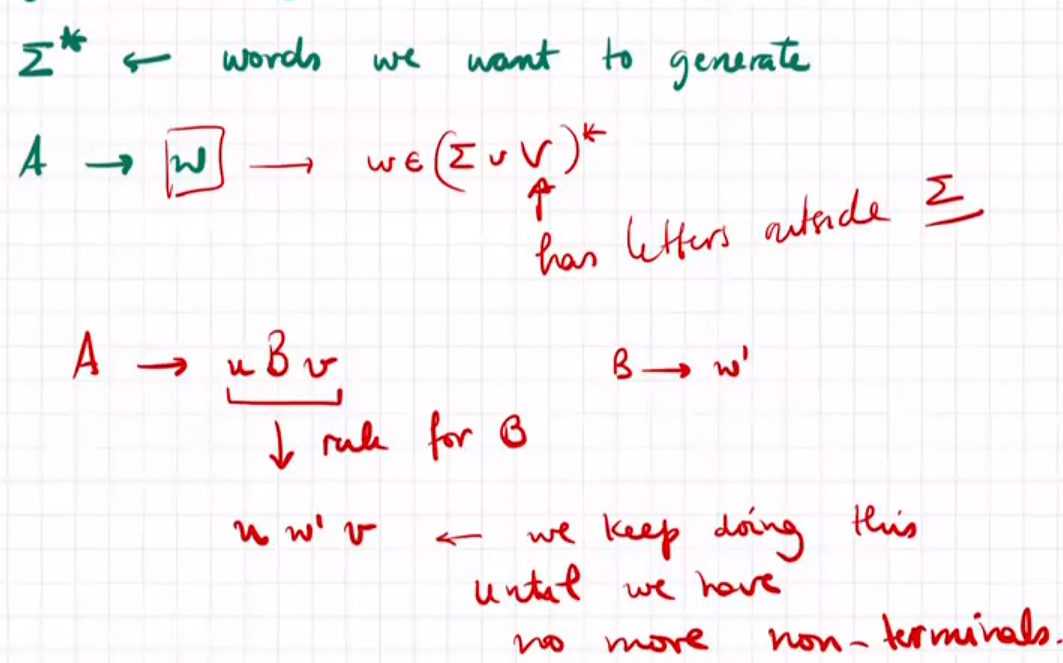 Σ* ← words we want to generate
A → w → w ∈ (Σ ∪ V)*
↑
has letters outside Σ
A → u B v B → w'
↓ rule for B
u w' v ← we keep doing this
until we have
no more non-terminals.